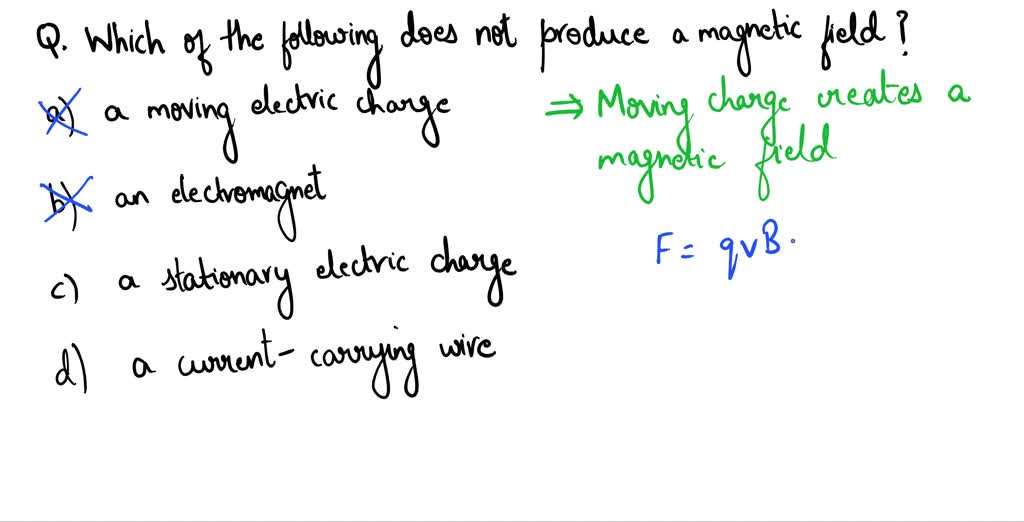 Q. Which of the following does not produce a magnetic field?
a) a moving electric charge
⇒ Moving charge creates a
magnetic field
b) an electromagnet
F = qvB.
c) a stationary electric charge
d) a current-carrying wire